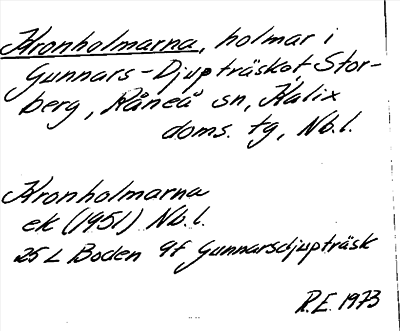 Kronholmarna, holmar i
Gunnars-Djupträsket, Stor-
berg, Råneå sn, Kalix
doms. tg, Nb.l.
Kronholmarna
ek (1951) Nb.l.
25 L Boden 9f Gunnarsdjupträsk
R.E. 1973